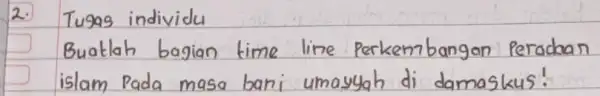 2. Tugas individu
Buatlah bagian time line Perkembangan Peradaban
islam Pada masa bani umayyah di damaskus!